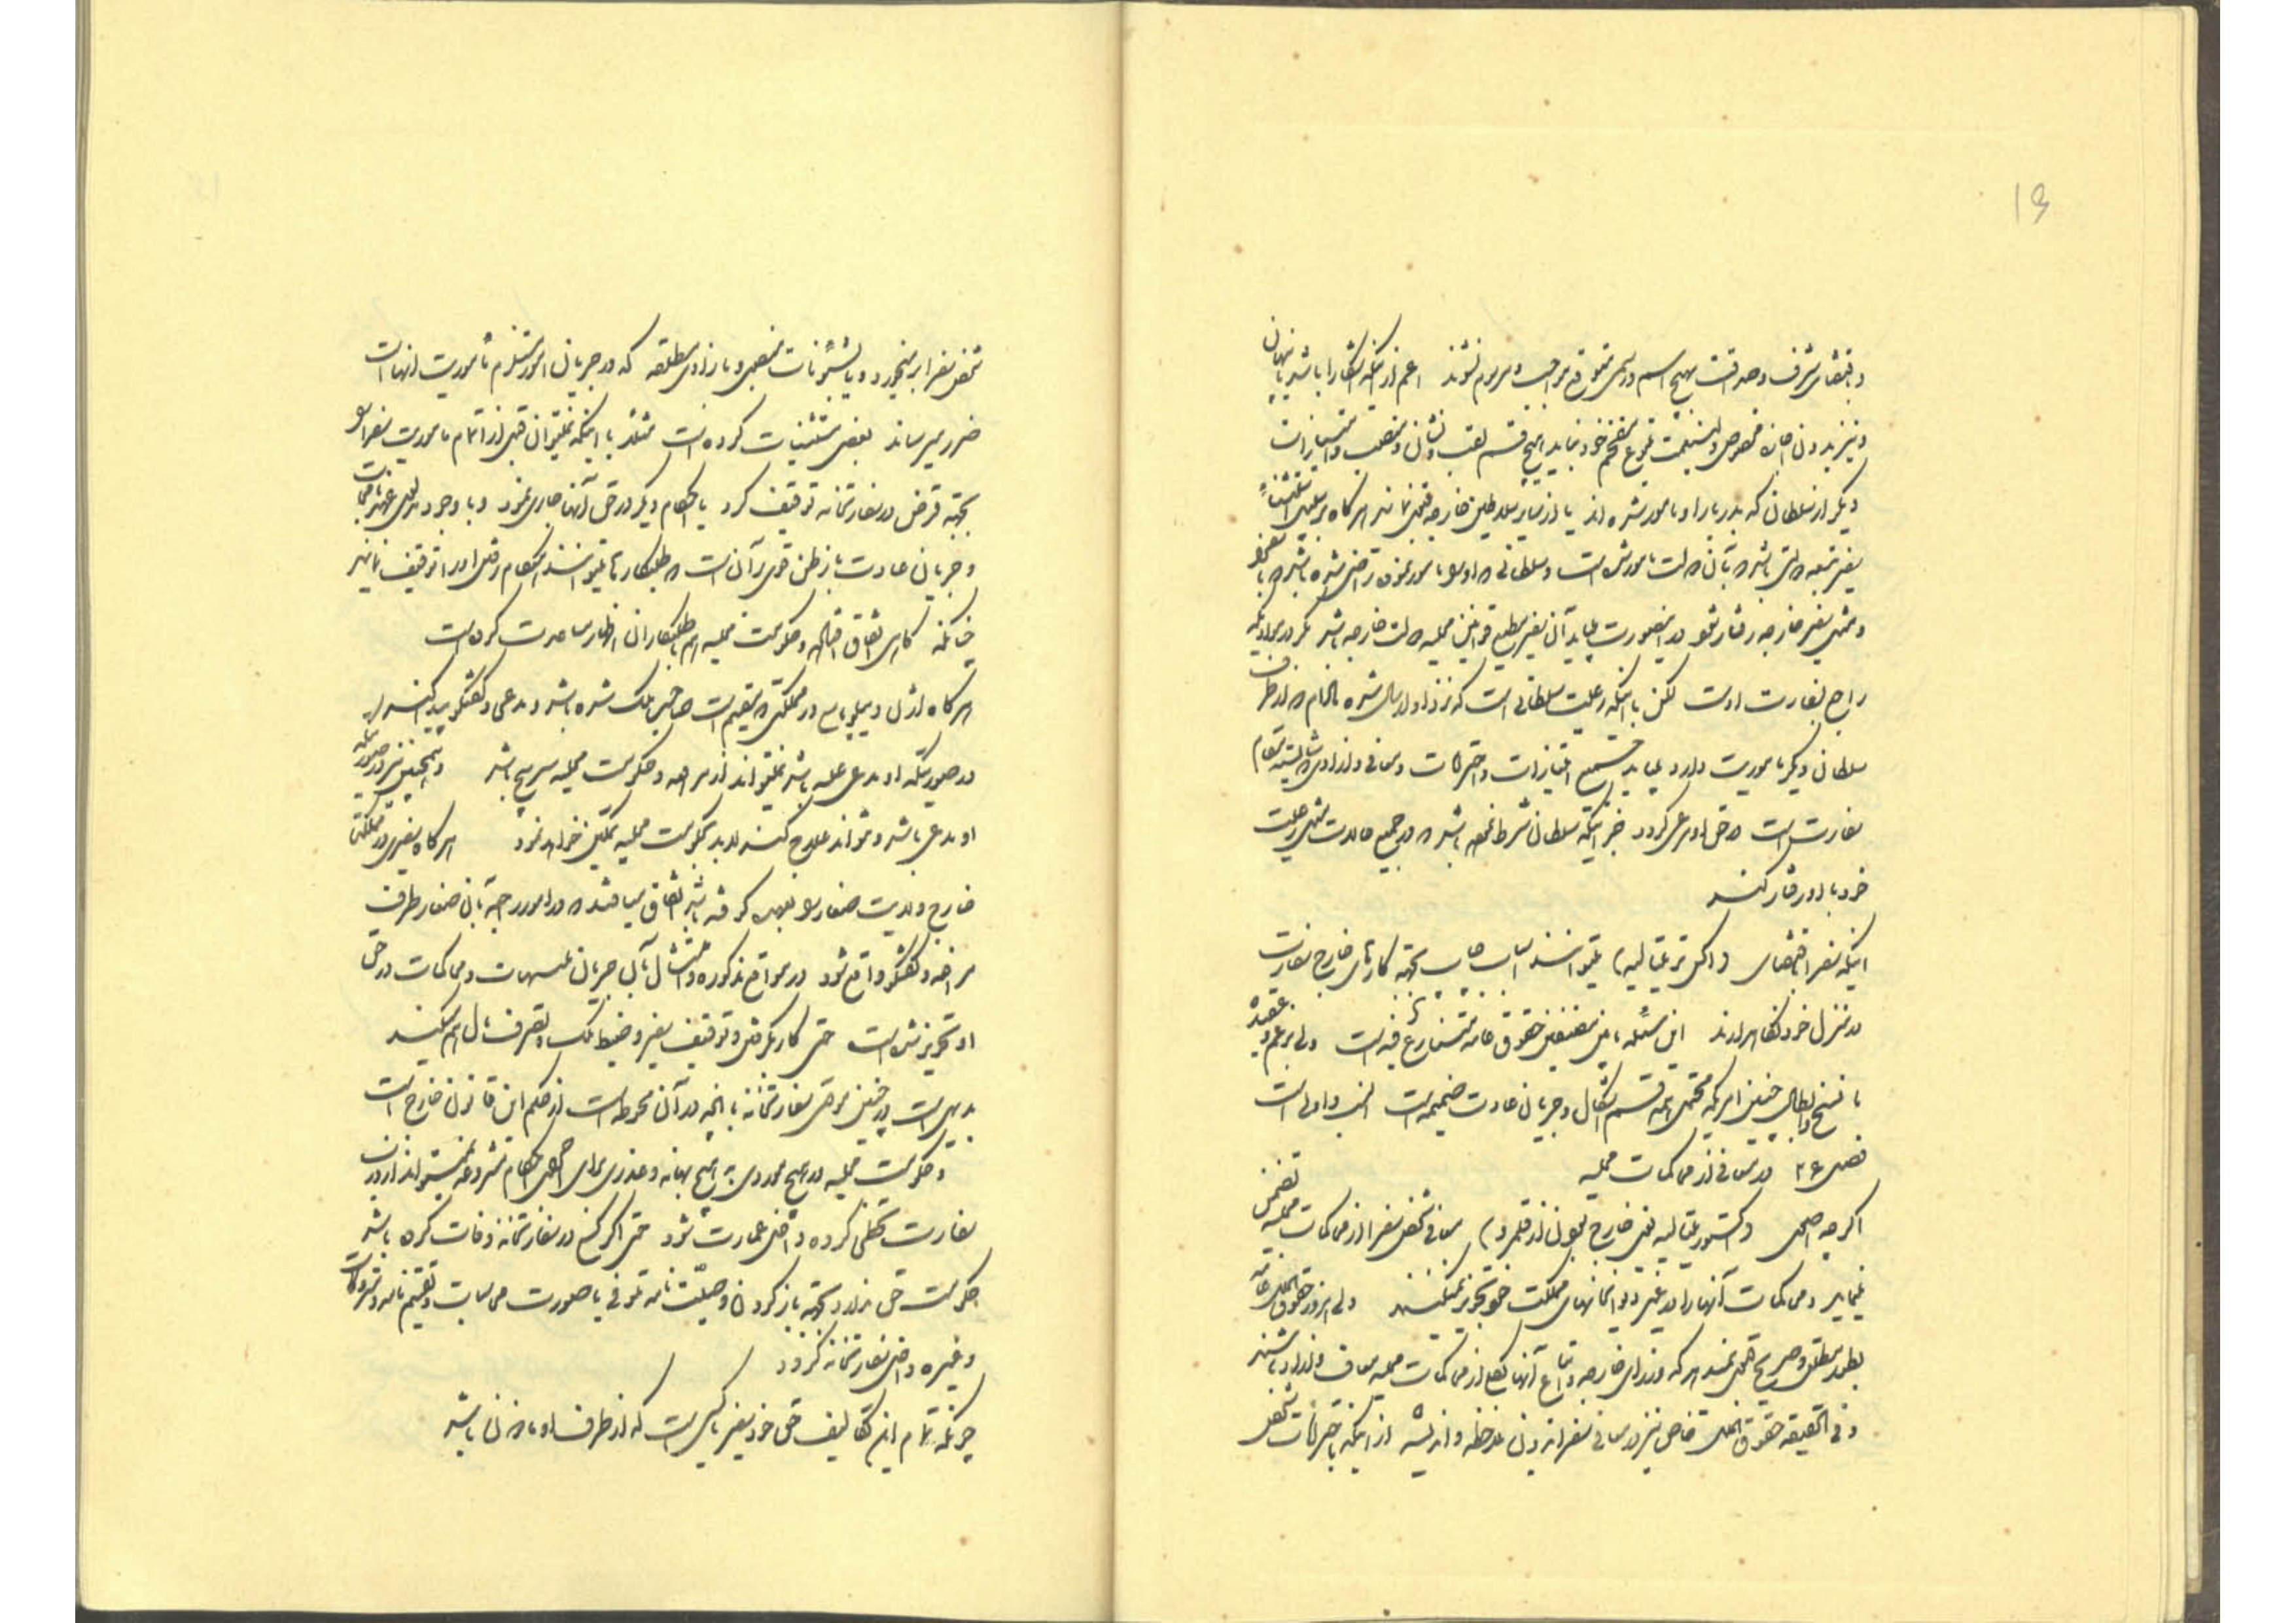 ۱۹
و باقتضای شرف و صداقت بهیچ اسم و رسمی متوقع مواجب و مرسوم نشوند اعم از اینکه آشکارا باشد یا پنهان
و نیز بدون اذن مخصوص ولینعمت متبوع مفخم خود نباید هیچ قسم لقب و نشان و منصب و امتیازات
دیگر از سلطان که بدربار او مامور شده‌اند یا از سایر سلاطین خارجه قبول نمایند هرگاه بر سبیل استثناء
سفیر تبعه دولتی باشد که بآن دولت مامورشده است و سلطانی که او را مامور نموده راضی شده باشد که با
و مثل سفیر خارجه رفتار شود در اینصورت باید آن سفیر مطیع قوانین محلیه دولت خارجه باشد مگر در مواردیکه
راجع بسفارت اوست لکن با اینکه رعیت سلطانی است که نزد او ارسال شده مادام که از طرف
سلطان دیگر ماموریت دارد باید جمیع امتیازات و احترامات و معافی و آزادی که شایسته مقام
سفارت است در حق او مرعی گردد جز اینکه سلطان شرط نموده باشد که در جمیع حالات مثل رعیت
خود با او رفتار کند
اینکه سفرا باقتضای (اکس تر تیتالیه) میتوانند اسباب چاپ بجهة کارهای خارج سفارت
در منزل خود نگاهدارند این مسئله مابین مصنفین حقوق عامه متنازع فیه است ولی بر عم و عقیده
ما نسخ و ابطال چنین امری که محتمل همه قسم اشکال و جریان عادت ضمیمه است انسب و اولی است
فصل ۲۶ در معافی از محاکمات محلیه
اگرچه اصل (اکستریتالیه یعنی خارج بودن از قلمرو) معافی شخص سفرا از محاکمات محلیه تضمن
نمینماید و محاکمات آنها را در غیر دیوانخانهای مملکت خود تجویز نمیکنند ولی امروز حقوق ملل عامه
بطور مطلق و صریح حکم میکند هر که وزرای خارجه و اتباع آنها کلا از محاکمات محلیه معاف و آزاد باشند
و فی الحقیقه حقوق ملل خاص نیز در معافی سفرا بدون ملاحظه و اندیشه از اینکه باحترامات شخص
شخص سفرا برمیخورد و یا بشئونات منصبی و بازادی مطلقه که در جریان امور مستلزم مأموریت آنهاست
ضرر میرساند بعضی مستثنیات کرده است مثلا با اینکه نمیتوان قبل از اتمام ماموریت سفرا را
بجهة قرض در سفارتخانه توقیف کرد یا احکام دیگر در حق آنها جاری نمود و با وجود
و جریان عادت باز ظن قوی بر آن است که طلبکارها میتوانند هنگام رفتن او را توقیف نمایند
چنانکه گاهی اتفاق افتاده و حکومت محلیه هم بطلبکاران اظهار مساعدت کرده است
هرگاه سفیر دیپلومات در مملکتی که مقیم است صاحب ملک شده باشد و مدعی و گفتگو پیدا کند
در صورتیکه او مدعی علیه باشد نمیتواند از مرافعه و حکومت محلیه سرپیچ باشد و همچنین نیز در صورتیکه
او مدعی باشد و بتواند علاج کند لابد بحکومت محلیه تمکین خواهد نمود هرگاه سفیری در مملکتی
خارج ولایت صغار را بعهده گرفته باشد اتفاق میافتد که در امور راجعه بآن صغار طرف
مرافعه و گفتگو واقع شود در مواقع مذکوره و امثال آن جریان و محاکمات در حق
او تجویز شده است حتی کار بگرفتن و توقیف سفیر و ضبط ملک و تصرف مال هم میکشد
بدیهی است در چنین موقع سفارتخانه با آنچه در آن محوطه است از حکم این قانون خارج است
و حکومت محلیه در هیچ موردی بهیچ بهانه و عذری برای اجرای احکام مشروعه نمیتواند از درون
سفارت تخطی کرده داخل عمارت شود حتی اگر کسی در سفارتخانه وفات کرده باشد
حکومت حق ندارد بجهة باز کردن وصیّت نامه متوفی یا صورت محاسبات و تقسیم نامه و متروکات
و غیره داخل سفارتخانه گردد
چونکه تمام این تکالیف حق خود سفیر یا کسی است که از طرف او ماذون باشد